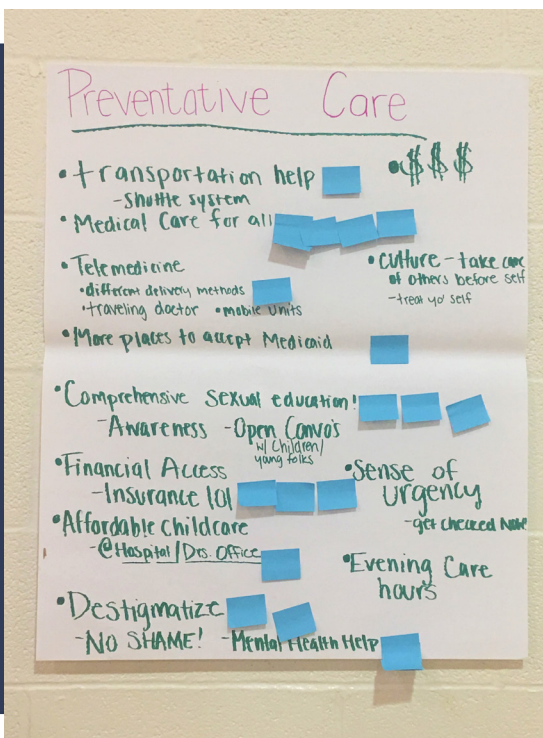 Preventative Care
• transportation help
- Shuttle system
• $$$
• Medical Care for all
• Telemedicine
• different delivery methods
• traveling doctor • mobile units
• Culture - take care
of others before self
- treat yo' self
• More places to accept Medicaid
• Comprehensive sexual education!
- Awareness - Open Convo's
w/ Children/
young folks
• Financial Access
- Insurance 101
• Sense of
urgency
- get checked Now
• Affordable Childcare
- @Hospital/Drs. Office
• Evening Care
hours
• Destigmatize
- NO SHAME! - Mental Health Help